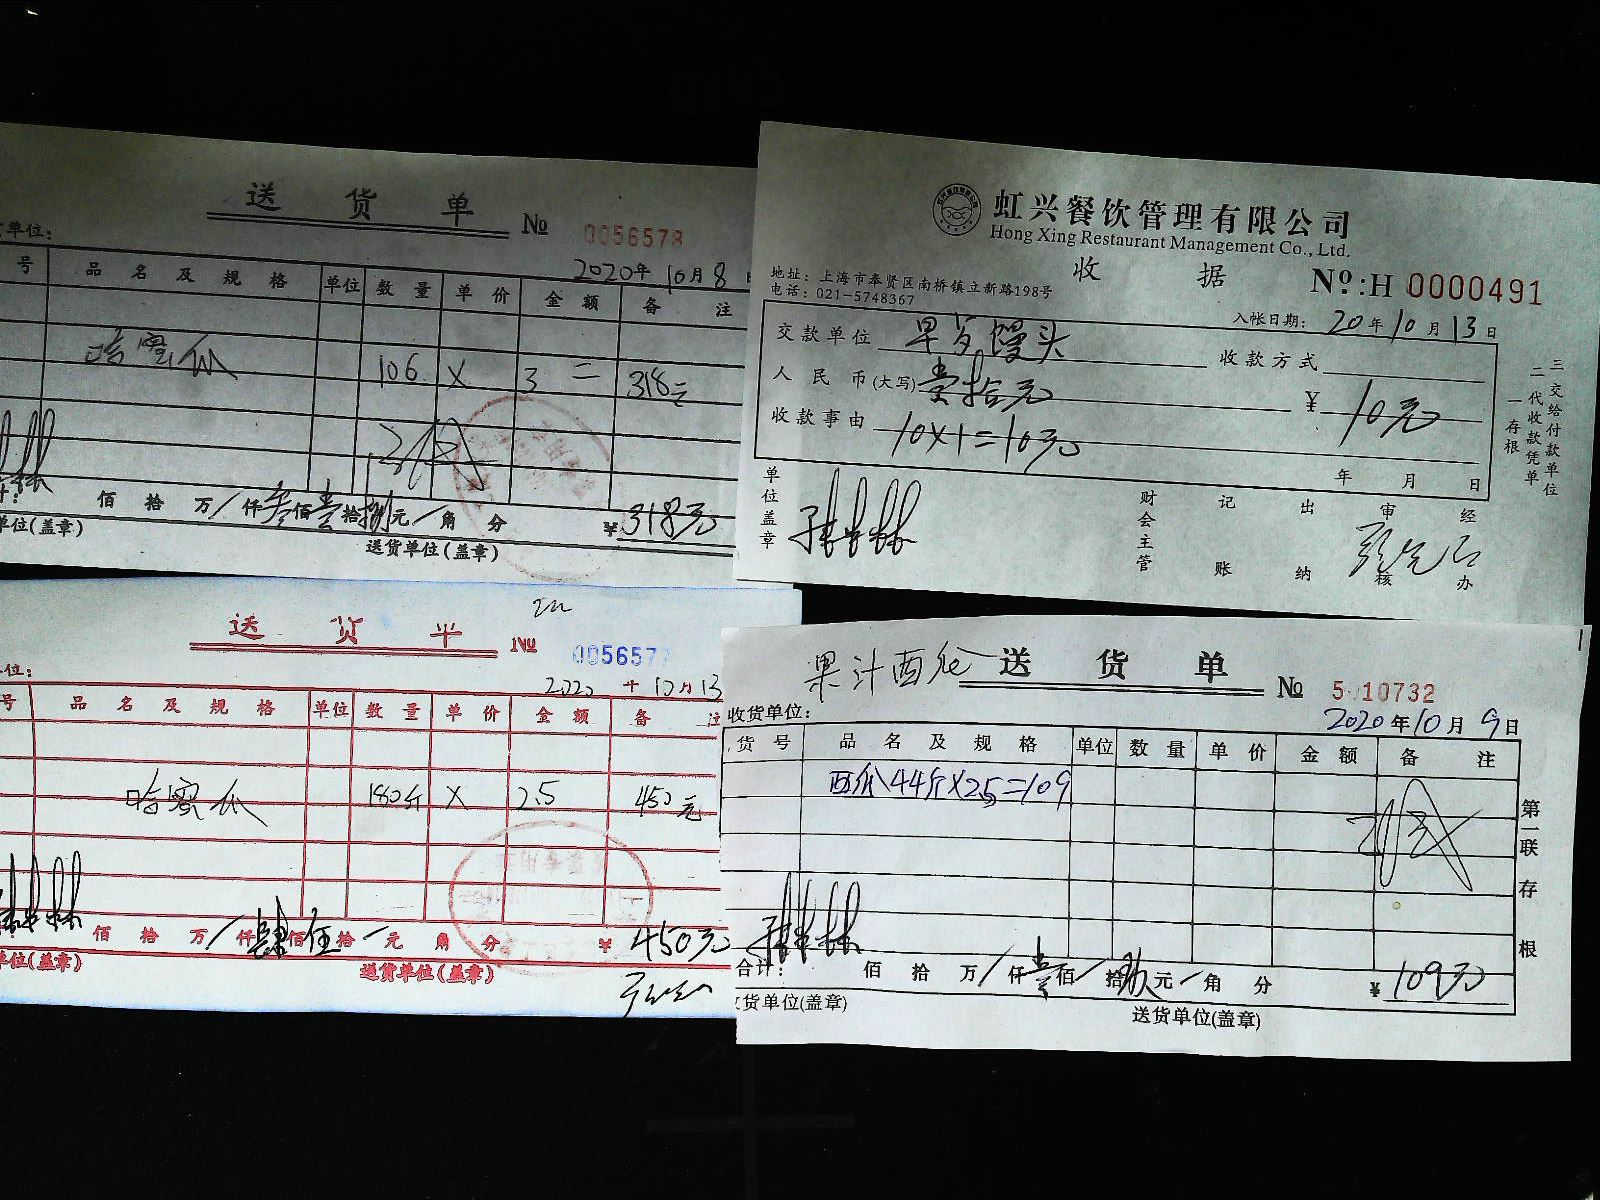 送 货 单
№ 0056578
2020年10月8
单位:
号 品 名 及 规 格 单位 数 量 单 价 金 额 备 注
哈密瓜 106 X 3 = 318元
佰 拾 万/仟叁佰壹拾捌元/角 分 ¥318元
单位(盖章) 送货单位(盖章)
虹兴餐饮管理有限公司
Hong Xing Restaurant Management Co., Ltd.
收 据
№:H 0000491
地址: 上海市奉贤区南桥镇立新路198号
电话: 021-5748367
入帐日期: 20年10月13日
交款单位 早岁馒头 收款方式
人民币(大写) 壹拾元 ¥ 10元
收款事由 10X1=10元
年 月 日
单位盖章 财会主管 记账 出纳 审核 经办
一存根
二代收款凭单
三交给付款单位
送 货 单
№ 005657
2020年10月13
位:
号 品 名 及 规 格 单位 数 量 单 价 金 额 备 注
哈密瓜 180斤 X 2.5 450元
佰 拾 万/仟肆佰伍拾/元 角 分 ¥450元
单位(盖章) 送货单位(盖章)
果汁西瓜 送 货 单
№ 5010732
收货单位: 2020年10月9日
货 号 品 名 及 规 格 单位 数 量 单 价 金 额 备 注
西瓜44斤X2.5=109
第一联 存根
合计: 佰 拾 万/仟壹佰/拾玖元/角 分 ¥109元
收货单位(盖章) 送货单位(盖章)